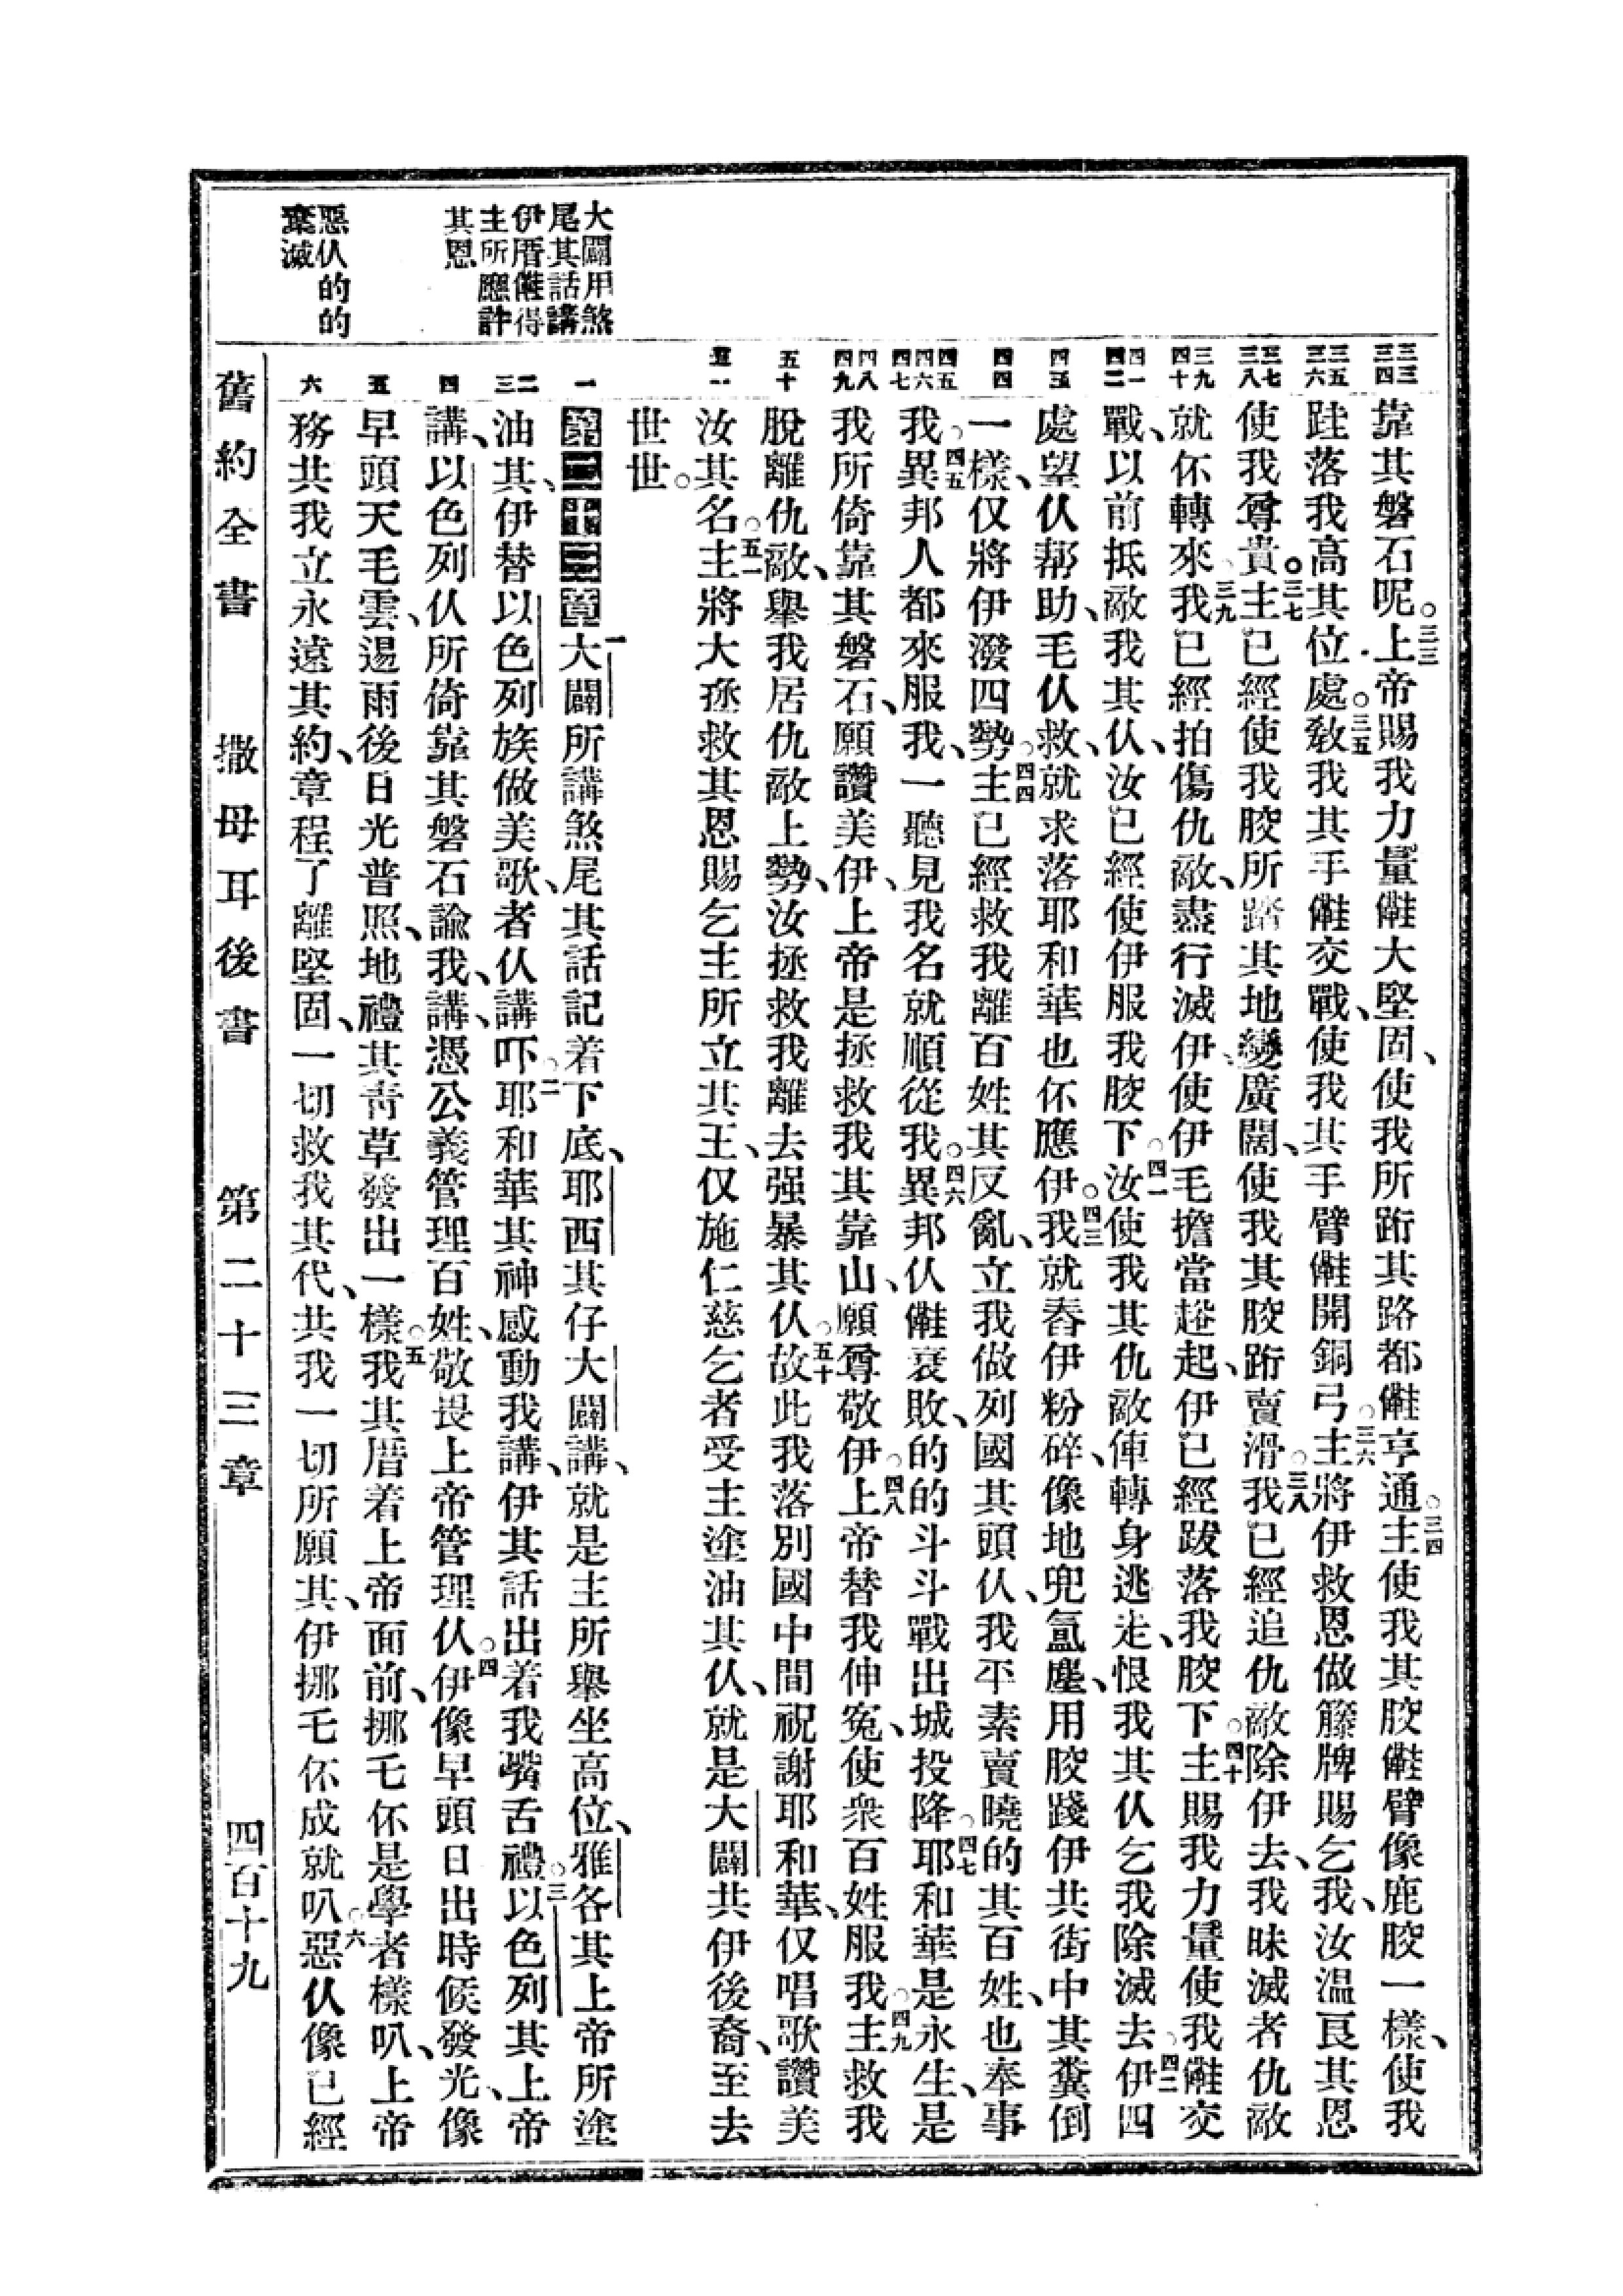 三三
三四
靠其磐石呢。三三上帝賜我力量𣍐大堅固、使我所跀其路都𣍐亨通。三四主使我其骹𣍐臂像鹿骹一樣、使我
三五
三六
跬落我高其位處。三五敎我其手𣍐交戰、使我其手臂𣍐開銅弓。三六主將伊救恩做籐牌賜乞我、汝溫良其恩
三七
三八
使我尊貴。三七主已經使我骹所踏其地變廣闊、使我其骹跀賣滑。三八我已經追仇敵除伊去、我昧滅者仇敵
三九
四十
就伓轉來。三九我已經拍傷仇敵、盡行滅伊、使伊毛擔當趒起、伊已經跋落我骹下。四十主賜我力量使我𣍐交
四一
四二
戰、以前抵敵我其仈、汝已經使伊服我骹下。四一汝使我其仇敵俥轉身逃走、恨我其仈乞我除滅去。四二伊四
四三
處望仈帮助、毛仈救、就求落耶和華也伓應伊。四三我就舂伊粉碎、像地兜氳塵、用骹踐伊共街中其糞倒
四四
一樣、仅將伊潑四勢。四四主已經救我離百姓其反亂、立我做列國其頭仈、我平素賣曉的其百姓、也奉事
四五
四六
四七
我。四五異邦人都來服我、一聽見我名就順從我。四六異邦仈𣍐衰敗、的的斗斗戰出城投降。四七耶和華是永生、是
四八
四九
我所倚靠其磐石、願讚美伊、上帝是拯救我其靠山、願尊敬伊。四八上帝替我伸寃、使衆百姓服我。四九主救我
五十
脫離仇敵、舉我居仇敵上勢、汝拯救我離去强暴其仈。五十故此我落別國中間祝謝耶和華、仅唱歌讚美
五一
汝其名。五一主將大拯救其恩賜乞主所立其王、仅施仁慈乞者受主塗油其仈、就是大闢共伊後裔、至去
世世。
大闢用煞
尾其話講
伊厝𣍐得
主所應許
其恩
一
第二十三章 一大闢所講煞尾其話記着下底、耶西其仔大闢講、就是主所舉坐高位、雅各其上帝所塗
二
三
油其、伊替以色列族做美歌、者仈講吓。二耶和華其神感動我講、伊其話出着我嘴舌禮。三以色列其上帝
四
講、以色列仈所倚靠其磐石諭我、講、憑公義管理百姓、敬畏上帝管理仈。四伊像早頭日出時候發光、像
五
早頭天毛雲、逿雨後日光普照、地禮其靑草發出一樣。五我其厝着上帝面前、挪乇伓是學者樣叭、上帝
惡仈的的
棄滅
六
務共我立永遠其約、章程了離堅固、一切救我其代、共我一切所願其、伊挪乇伓成就叭。六惡仈像已經
舊約全書 撒母耳後書 第二十三章 四百十九